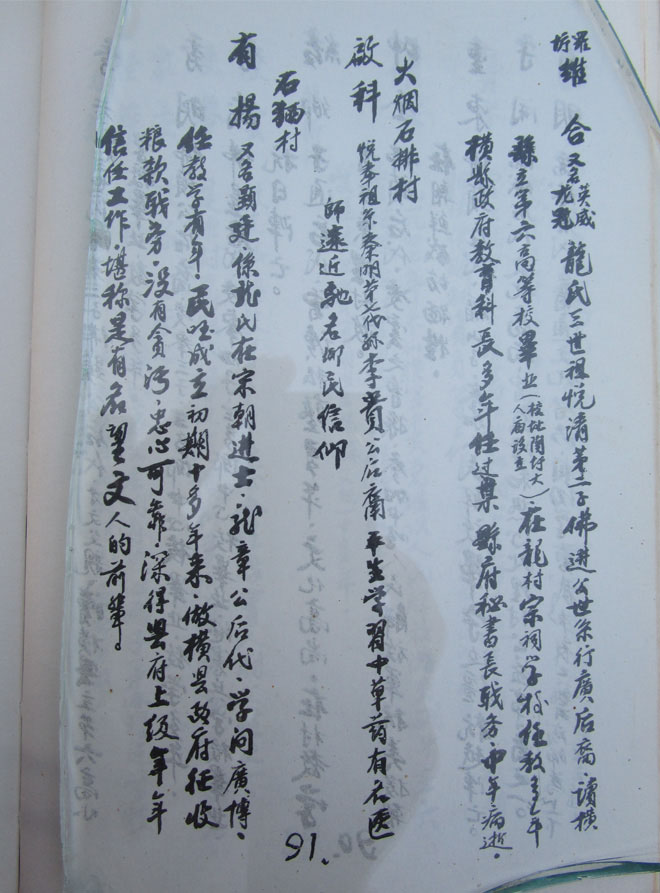 羅圩 維合 又名英威龙魁 龍氏三世祖悦清第二子佛進公世系行廣后裔·讀横
縣立第六高等校畢业(校址陶圩大人庙设立)·在龍村宗祠学校任教多年
横縣政府教育科長多年任过某縣府秘書長战务·中年病逝·
火烟石排村
啟科 悦泰祖系秦明第七代孙李贵公后裔 平生学習中草药有名医
師遠近馳名鄉民信仰
石牺村
有揚 又名顕廷·係龍氏在宋朝進士·龙章公后代·学问廣博·
任教学有年·民囯成立初期十多年来·做横县政府征收
粮款战劳·没有贪污·忠心可靠·深得县府上级年年
信任工作·堪称是有名望文人的前輩。
91.